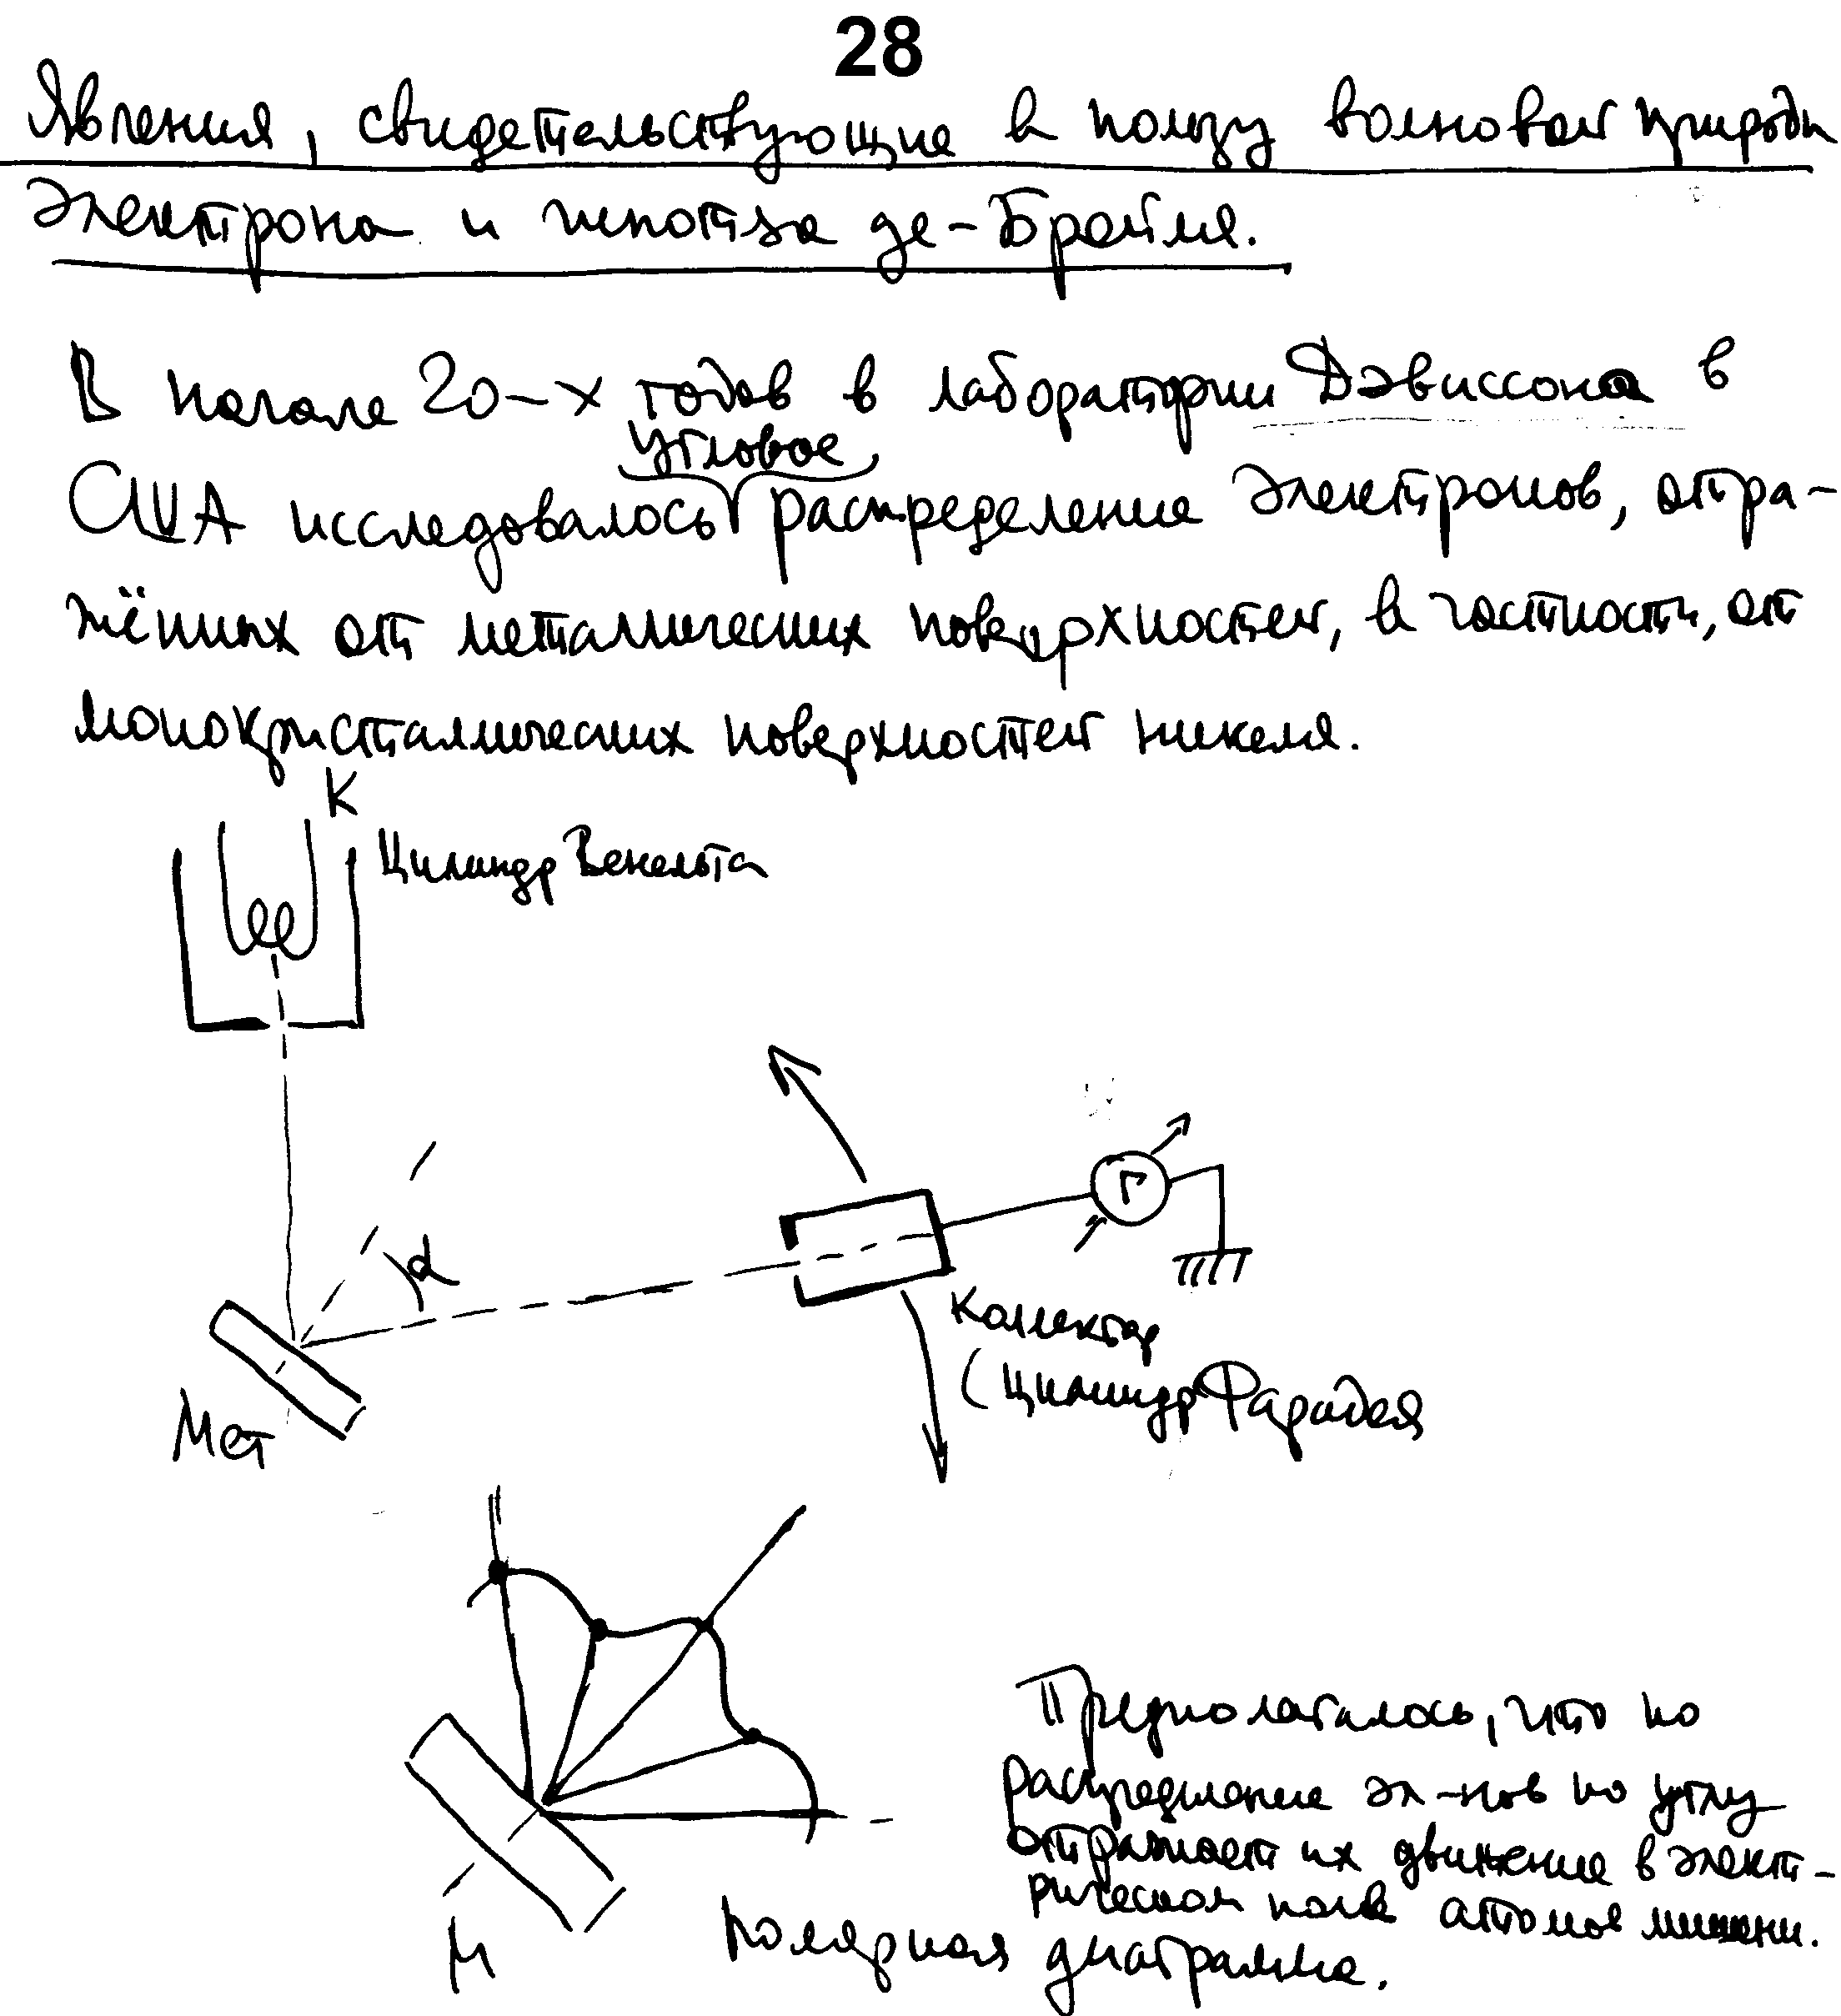 28
Явления, свидетельствующие в пользу волновой природы
электрона и гипотза де-Бройля.
В начале 20-х годов в лаборатории Дэвиссона в
угловое
США исследовалось распределение электронов, отра-
жённых от металлических поверхностей, в частности, от
монокристаллических поверхностей никеля.
К
Цилиндр Венельта
Г
α
Коллектор
(Цилиндр Фарадея
Мет
Предполагалось, что но
распределение эл-нов по углу
отражает их движение в элект-
рическом поле атомов мишени.
М
Полярная диаграмма.